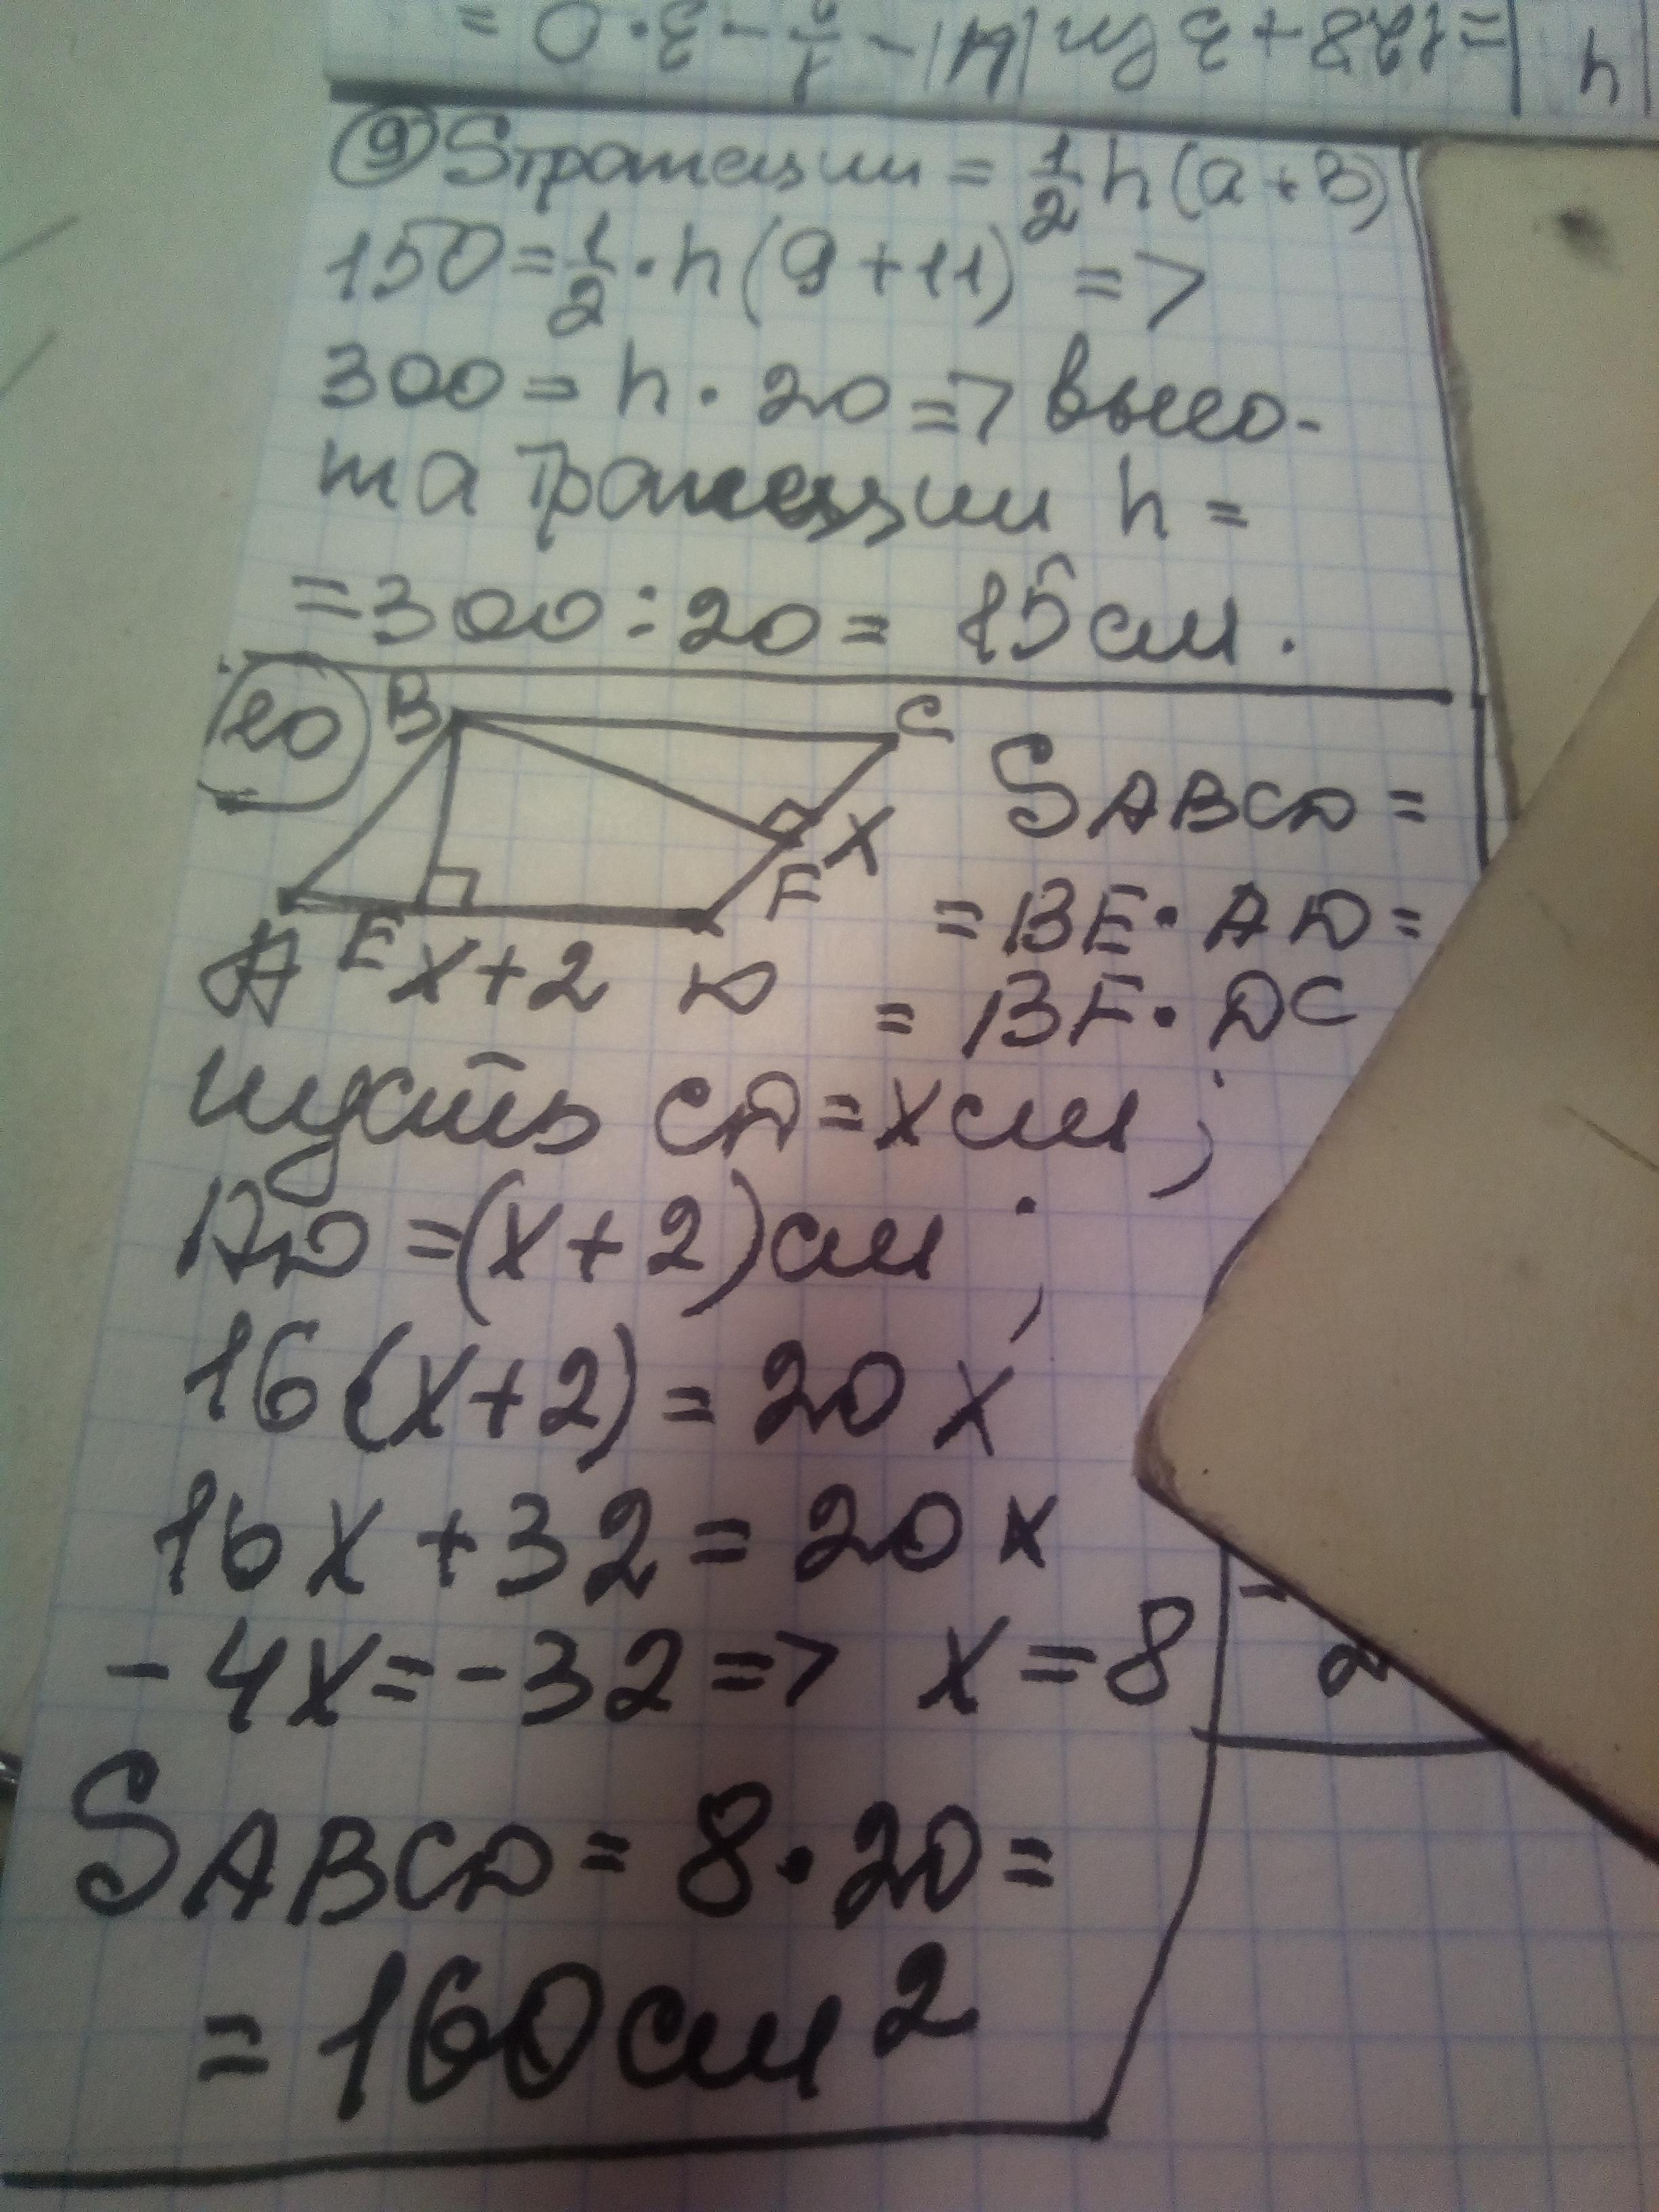 ⑨ Sтрапеции = 1/2 h(a+в)
150 = 1/2 · h(9+11) =>
300 = h · 20 => высо-
та трапеции h =
= 300 : 20 = 15 см.
20 B C
SABCD =
X
F
= BE · AD =
A E X+2 D
= BF · DC
пусть CD = x см ;
AD = (x+2) см ;
16(x+2) = 20x
16x + 32 = 20x
-4x = -32 => x = 8
SABCD = 8 · 20 =
= 160 см²